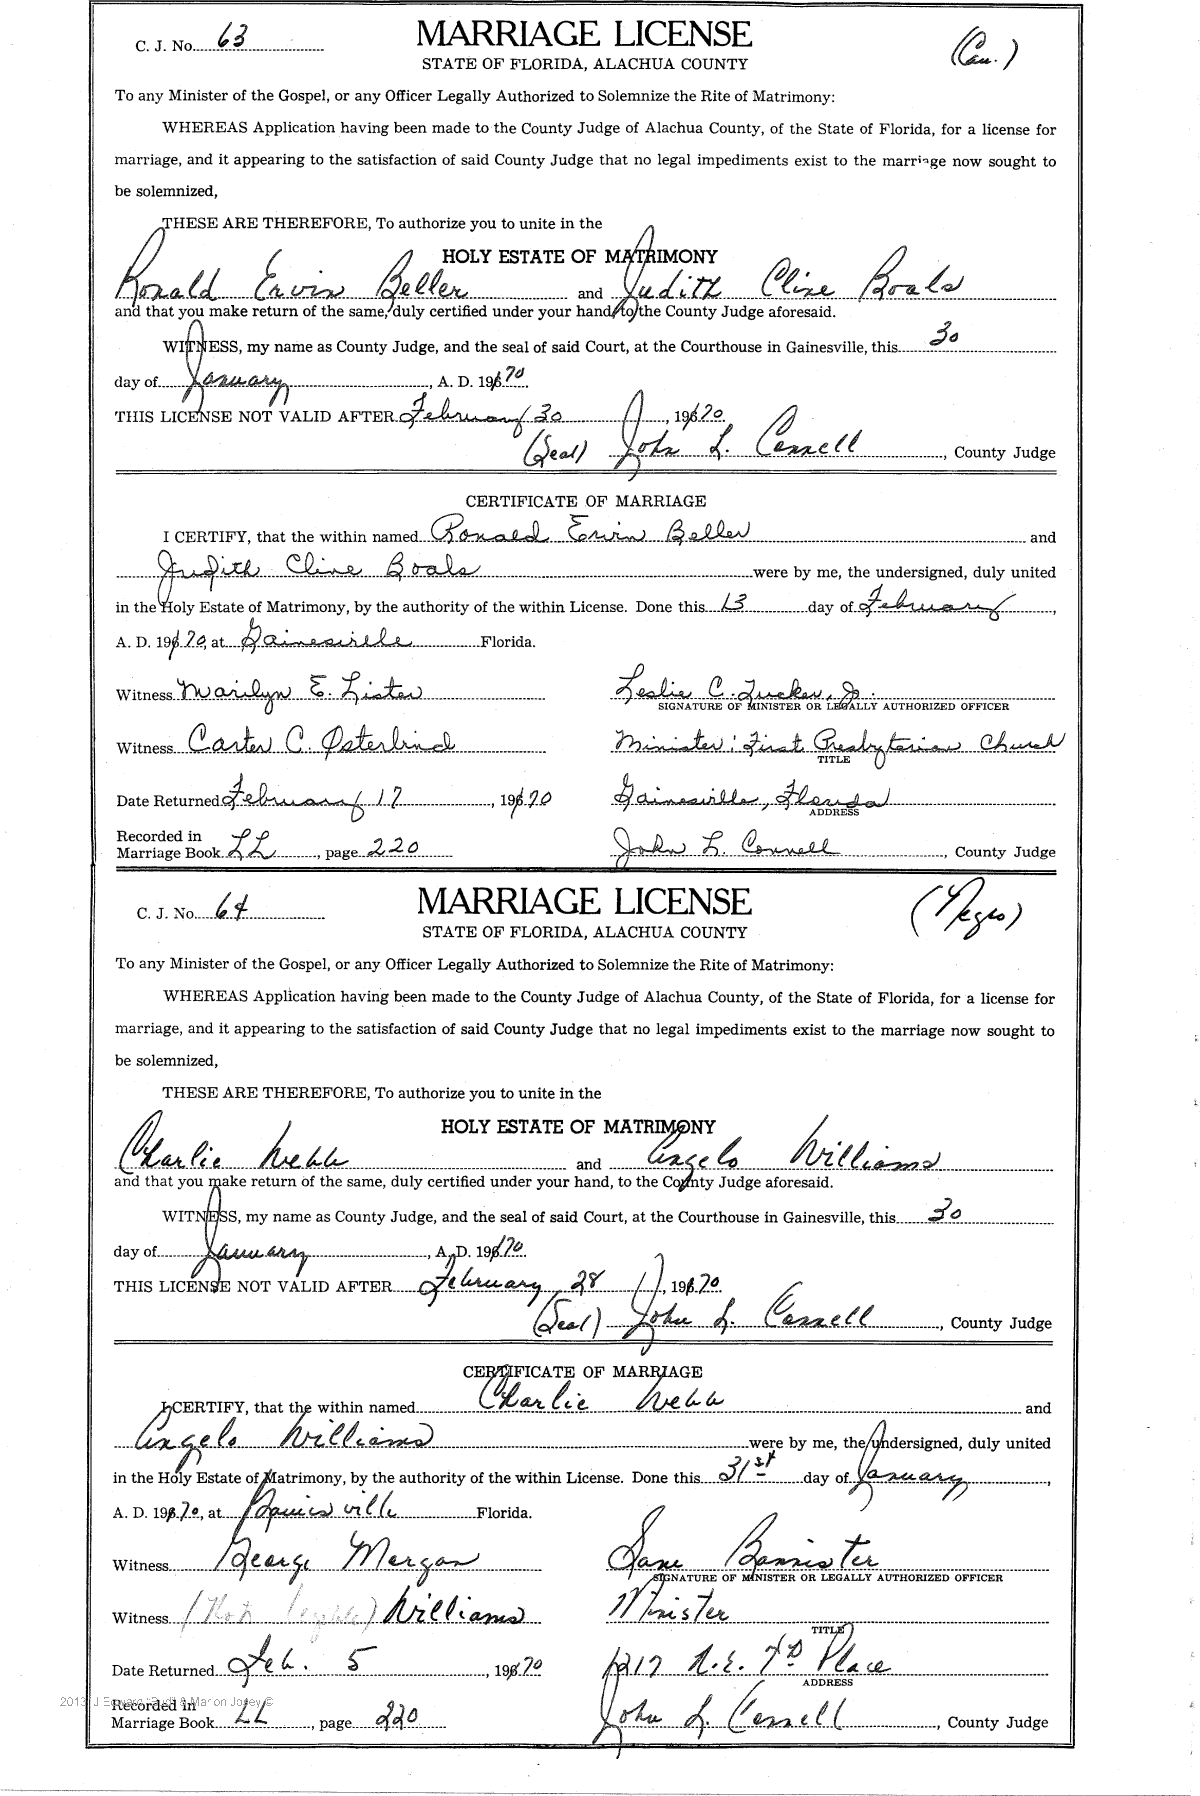 C. J. No. 63 MARRIAGE LICENSE (Cau.)
STATE OF FLORIDA, ALACHUA COUNTY
To any Minister of the Gospel, or any Officer Legally Authorized to Solemnize the Rite of Matrimony:
WHEREAS Application having been made to the County Judge of Alachua County, of the State of Florida, for a license for
marriage, and it appearing to the satisfaction of said County Judge that no legal impediments exist to the marriage now sought to
be solemnized,
THESE ARE THEREFORE, To authorize you to unite in the
HOLY ESTATE OF MATRIMONY
Ronald Ervin Beller and Judith Cline Boals
and that you make return of the same, duly certified under your hand to the County Judge aforesaid.
WITNESS, my name as County Judge, and the seal of said Court, at the Courthouse in Gainesville, this 30
day of January, A. D. 196 70.
THIS LICENSE NOT VALID AFTER February 30, 196 70.
(Seal) John L. Connell, County Judge
CERTIFICATE OF MARRIAGE
I CERTIFY, that the within named Ronald Ervin Beller and
Judith Cline Boals were by me, the undersigned, duly united
in the Holy Estate of Matrimony, by the authority of the within License. Done this 13 day of February,
A. D. 196 70, at Gainesville Florida.
Witness Marilyn E. Lister Leslie C. Tucker, Jr.
SIGNATURE OF MINISTER OR LEGALLY AUTHORIZED OFFICER
Witness Carter C. Osterbind Minister: First Presbyterian Church
TITLE
Date Returned February 17, 196 70 Gainesville, Florida
ADDRESS
Recorded in
Marriage Book LL, page 220 John L. Connell, County Judge
C. J. No. 64 MARRIAGE LICENSE (Negro)
STATE OF FLORIDA, ALACHUA COUNTY
To any Minister of the Gospel, or any Officer Legally Authorized to Solemnize the Rite of Matrimony:
WHEREAS Application having been made to the County Judge of Alachua County, of the State of Florida, for a license for
marriage, and it appearing to the satisfaction of said County Judge that no legal impediments exist to the marriage now sought to
be solemnized,
THESE ARE THEREFORE, To authorize you to unite in the
HOLY ESTATE OF MATRIMONY
Charlie Webb and Angelo Williams
and that you make return of the same, duly certified under your hand, to the County Judge aforesaid.
WITNESS, my name as County Judge, and the seal of said Court, at the Courthouse in Gainesville, this 30
day of January, A. D. 196 70.
THIS LICENSE NOT VALID AFTER February 28, 196 70.
(Seal) John L. Connell, County Judge
CERTIFICATE OF MARRIAGE
I CERTIFY, that the within named Charlie Webb and
Angelo Williams were by me, the undersigned, duly united
in the Holy Estate of Matrimony, by the authority of the within License. Done this 31st day of January,
A. D. 196 70, at Gainesville Florida.
Witness George Morgan Sane Bannister
SIGNATURE OF MINISTER OR LEGALLY AUTHORIZED OFFICER
Witness (Not legible) Williams Minister
TITLE
Date Returned Feb. 5, 196 70 1217 N.E. 7th Place
ADDRESS
2013 J Edward "Bud" & Marion Josey ©
Recorded in
Marriage Book LL, page 220 John L. Connell, County Judge